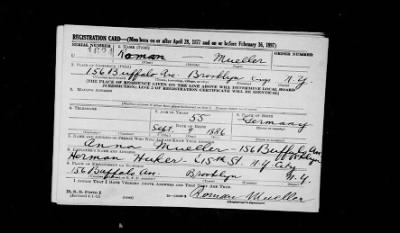 REGISTRATION CARD—(Men born on or after April 28, 1877 and on or before February 16, 1897)
SERIAL NUMBER 1. NAME (Print) ORDER NUMBER
U Roman Mueller
2. PLACE OF RESIDENCE (Print)
156 Buffalo Ave. Brooklyn N.Y.
[THE PLACE OF RESIDENCE GIVEN ON THE LINE ABOVE WILL DETERMINE LOCAL BOARD
JURISDICTION; LINE 2 OF REGISTRATION CERTIFICATE WILL BE IDENTICAL]
3. MAILING ADDRESS
4. TELEPHONE 5. AGE IN YEARS 6. PLACE OF BIRTH
55
DATE OF BIRTH Germany
Sept. 9 1886
7. NAME AND ADDRESS OF PERSON WHO WILL ALWAYS KNOW YOUR ADDRESS
Anna Mueller - 156 Buffalo Ave Brooklyn
8. EMPLOYER'S NAME AND ADDRESS
Herman 15th St. N.Y. City
9. PLACE OF EMPLOYMENT OR BUSINESS
156 Buffalo Ave. Brooklyn N.Y.
I AFFIRM THAT I HAVE VERIFIED ABOVE ANSWERS AND THAT THEY ARE TRUE.
D. S. S. Form 1
Roman Mueller
(Registrant's signature)